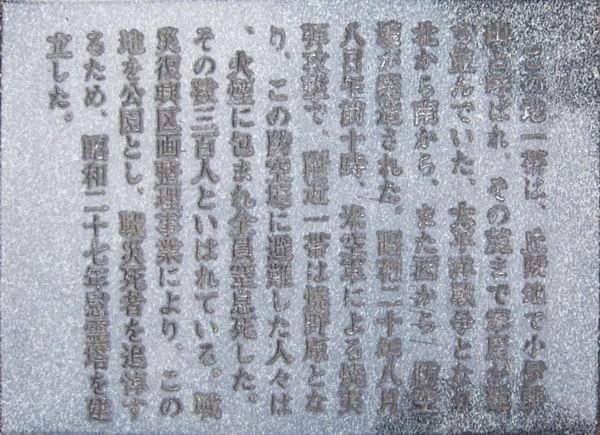 この地一帯は、丘陵地で小伊勢
山と呼ばれ、その麓まで家屋が建
ち並んでいた。太平洋戦争となり
北から南から、また西から防空
壕が築造された。昭和二十年八月
八日午前十時、米空軍による焼夷
弾攻撃で、附近一帯は焼野原とな
り、この防空壕に避難した人々は
、火煙に包まれ全員窒息死した。
その数三百人といはれている。戦
災復興区画整理事業により、この
地を公園とし、戦災死者を追悼す
るため、昭和二十七年慰霊塔を建
立した。